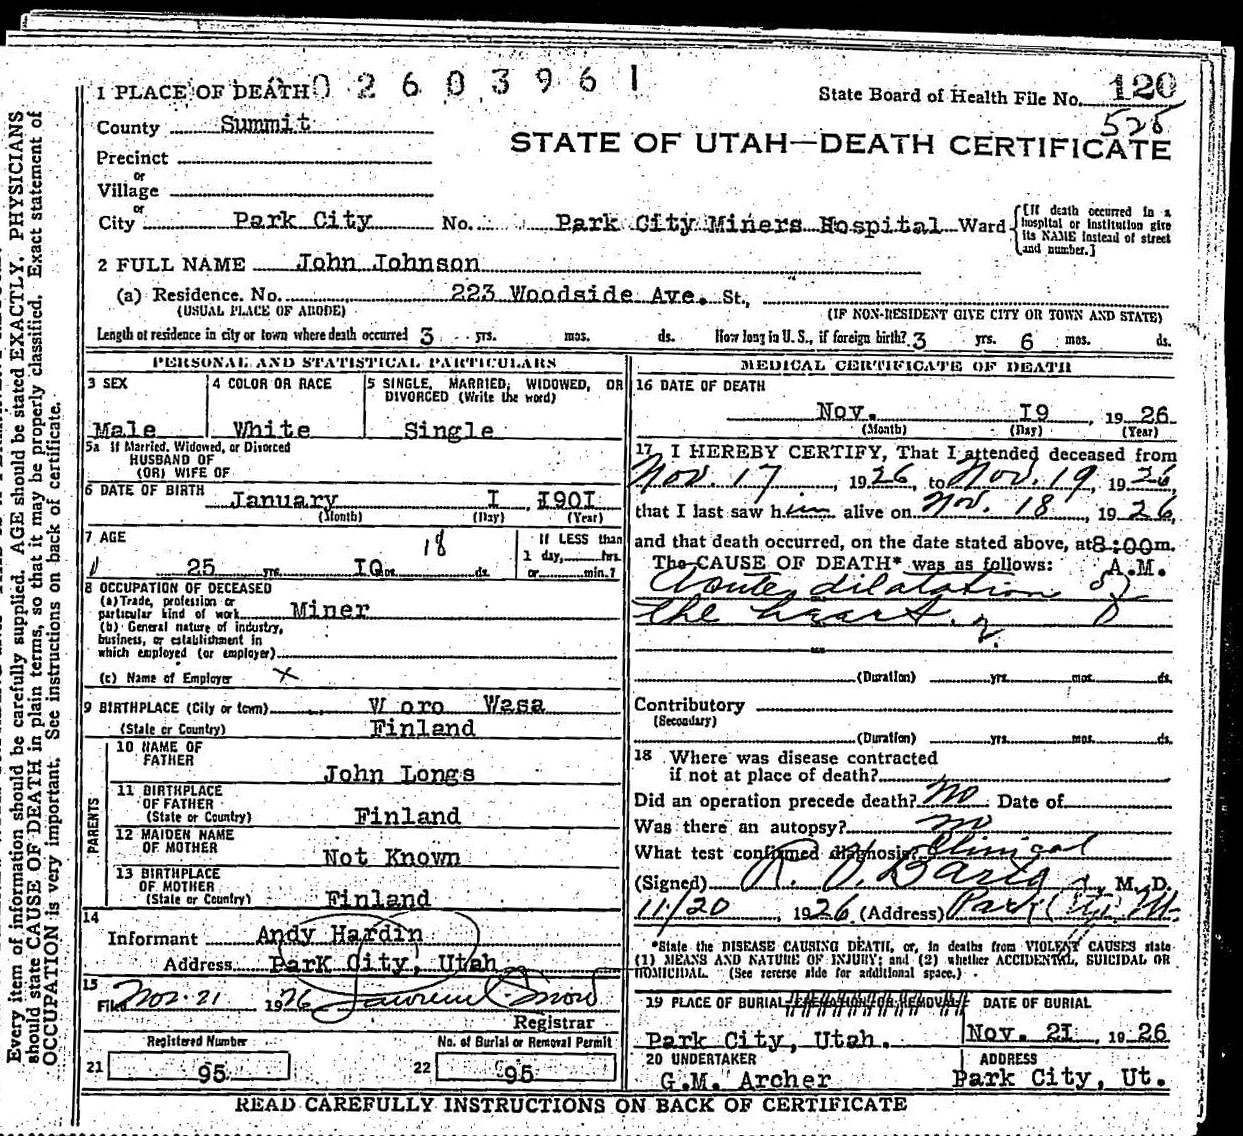 1 PLACE OF DEATH 02603961
State Board of Health File No. 120
525
County Summit
STATE OF UTAH—DEATH CERTIFICATE
Precinct
or
Village
or
City Park City No. Park City Miners Hospital Ward {[If death occurred in a hospital or institution give its NAME instead of street and number.]
2 FULL NAME John Johnson
(a) Residence. No. 223 Woodside Ave. St.,
(USUAL PLACE OF ABODE) (IF NON-RESIDENT GIVE CITY OR TOWN AND STATE)
Length of residence in city or town where death occurred 3 yrs. mos. ds. How long in U. S., if foreign birth? 3 yrs. 6 mos. ds.
PERSONAL AND STATISTICAL PARTICULARS
3 SEX 4 COLOR OR RACE 5 SINGLE, MARRIED, WIDOWED, OR
DIVORCED (Write the word)
Male White Single
5a If Married, Widowed, or Divorced
HUSBAND OF
(OR) WIFE OF
6 DATE OF BIRTH January I I90I
(Month) (Day) (Year)
7 AGE 18 If LESS than
25 yrs. IO mos. ds. 1 day, hrs.
or min.?
8 OCCUPATION OF DECEASED
(a) Trade, profession or
particular kind of work Miner
(b) General nature of industry,
business, or establishment in
which employed (or employer)
(c) Name of Employer x
9 BIRTHPLACE (City or town) W oro Wasa
(State or Country) Finland
PARENTS
10 NAME OF
FATHER John Longs
11 BIRTHPLACE
OF FATHER
(State or Country) Finland
12 MAIDEN NAME
OF MOTHER Not Known
13 BIRTHPLACE
OF MOTHER
(State or Country) Finland
14
Informant Andy Hardin
Address ParK City, Utah
15
Filed Nov. 21 1926 Lawrence Snow
Registrar
Registered Number No. of Burial or Removal Permit
21 95 22 95
MEDICAL CERTIFICATE OF DEATH
16 DATE OF DEATH
Nov. I9, 1926
(Month) (Day) (Year)
17 I HEREBY CERTIFY, That I attended deceased from
Nov. 17, 1926, to Nov. 19, 1926,
that I last saw him alive on Nov. 18, 1926,
and that death occurred, on the date stated above, at 8:00 m.
The CAUSE OF DEATH* was as follows: A.M.
Acute dilatation of
the heart.
(Duration) yrs. mos. ds.
Contributory
(Secondary)
(Duration) yrs. mos. ds.
18 Where was disease contracted
if not at place of death?
Did an operation precede death? No Date of
Was there an autopsy? no
What test confirmed diagnosis? Clinical
(Signed) M. D.
11/20, 1926 (Address) Park City Ut.
*State the DISEASE CAUSING DEATH, or, in deaths from VIOLENT CAUSES state
(1) MEANS AND NATURE OF INJURY; and (2) whether ACCIDENTAL, SUICIDAL OR
HOMICIDAL. (See reverse side for additional space.)
19 PLACE OF BURIAL, CREMATION OR REMOVAL DATE OF BURIAL
Park City, Utah. Nov. 2I 1926
20 UNDERTAKER ADDRESS
G.M. Archer Park City, Ut.
READ CAREFULLY INSTRUCTIONS ON BACK OF CERTIFICATE
Every item of information should be carefully supplied. AGE should be stated EXACTLY. PHYSICIANS
should state CAUSE OF DEATH in plain terms, so that it may be properly classified. Exact statement of
OCCUPATION is very important. See instructions on back of certificate.